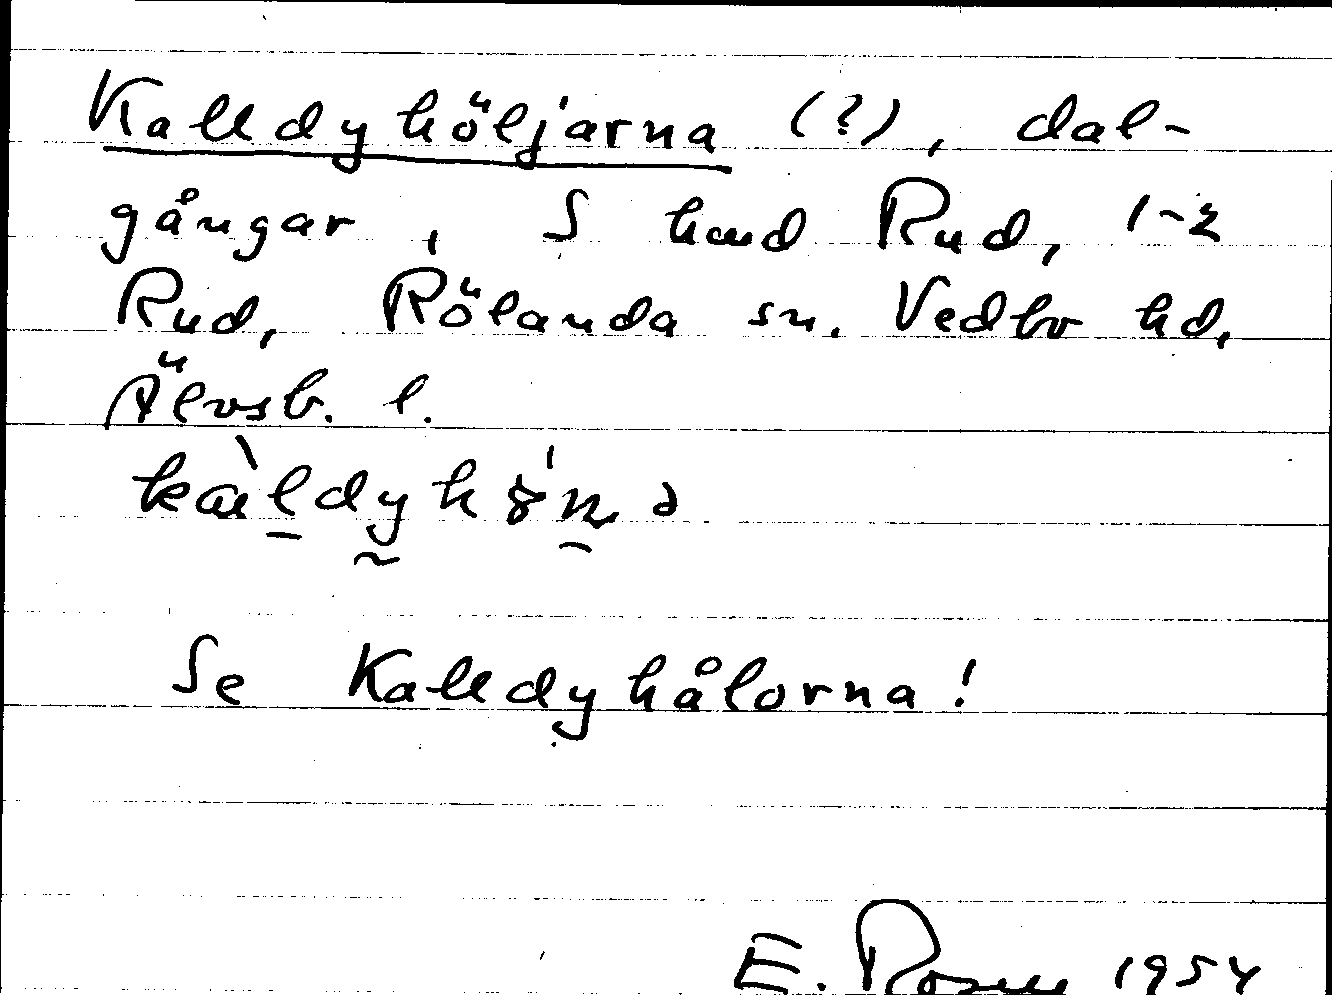 Kalldyhöljarna (?), dal-
gångar, S hmd Rud, 1-2
Rud, Rölanda sn. Vedbo hd,
Älvsb. l.
Se Kalldyhålorna!
E. Rosell 1954